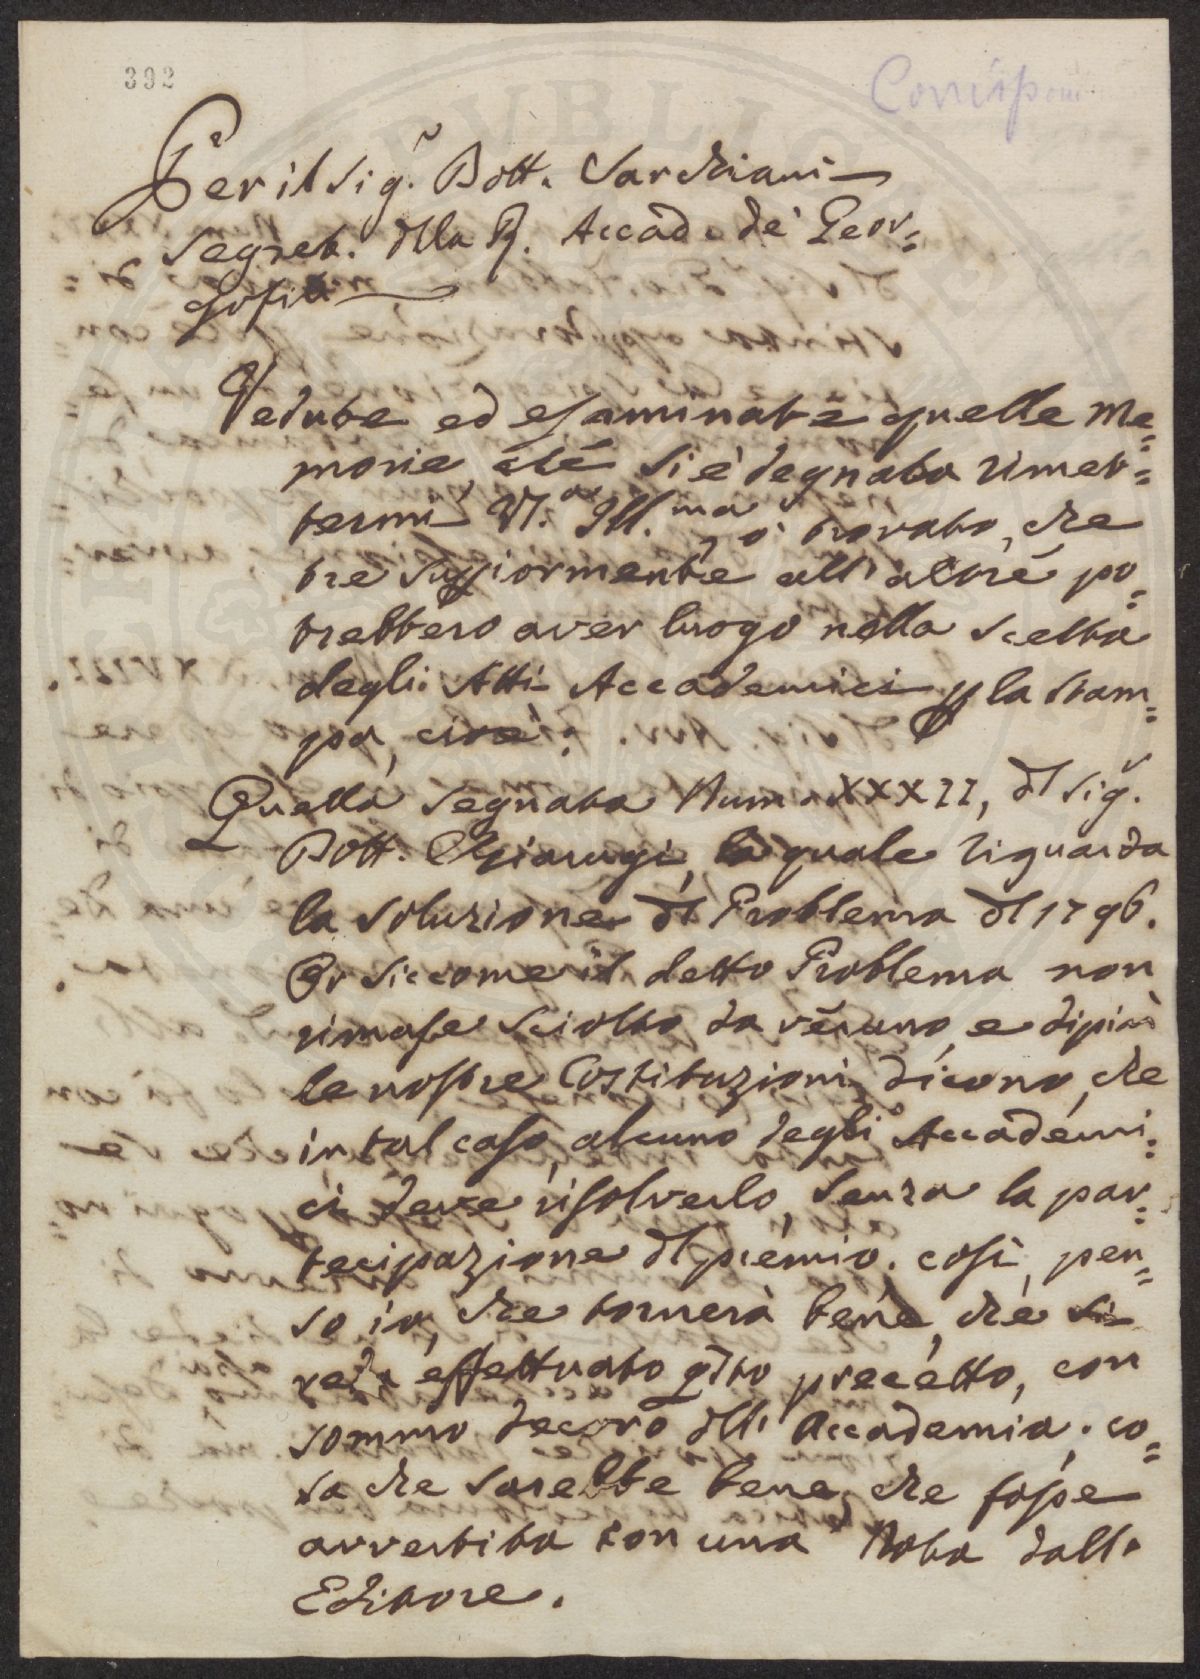 392
Corrisp
Per il Sig.r Dott. Sarchiani
Segret. della R. Accad. de' Geor=
gofili
Vedute ed esaminate quelle Me=
morie, che si è degnata rimet=
termi V.S. Ill.ma, ò trovato, che
tre superiormente all'altre po=
trebbero aver luogo nella scelta
degli Atti Accademici p la stam=
pa, cioè:
Quella segnata Num. XXXII, dl Sig.r
Dott. Chiarugi, la quale riguarda
la soluzione dl Problema dl 1796.
Or siccome il detto Problema non
rimase sciolto da veruno, e dipiù
le nostre Costituzioni dicono, che
in tal caso, alcuno degli Accademi=
ci deve risolverlo, senza la par=
tecipazione dl premio. così, pen=
so io, che tornerà bene, che si
veda effettuato qsto precetto, con
sommo decoro dll' Accademia. co=
sa che sarebbe bene, che fosse
avvertita con una Nota dall'
Editore.